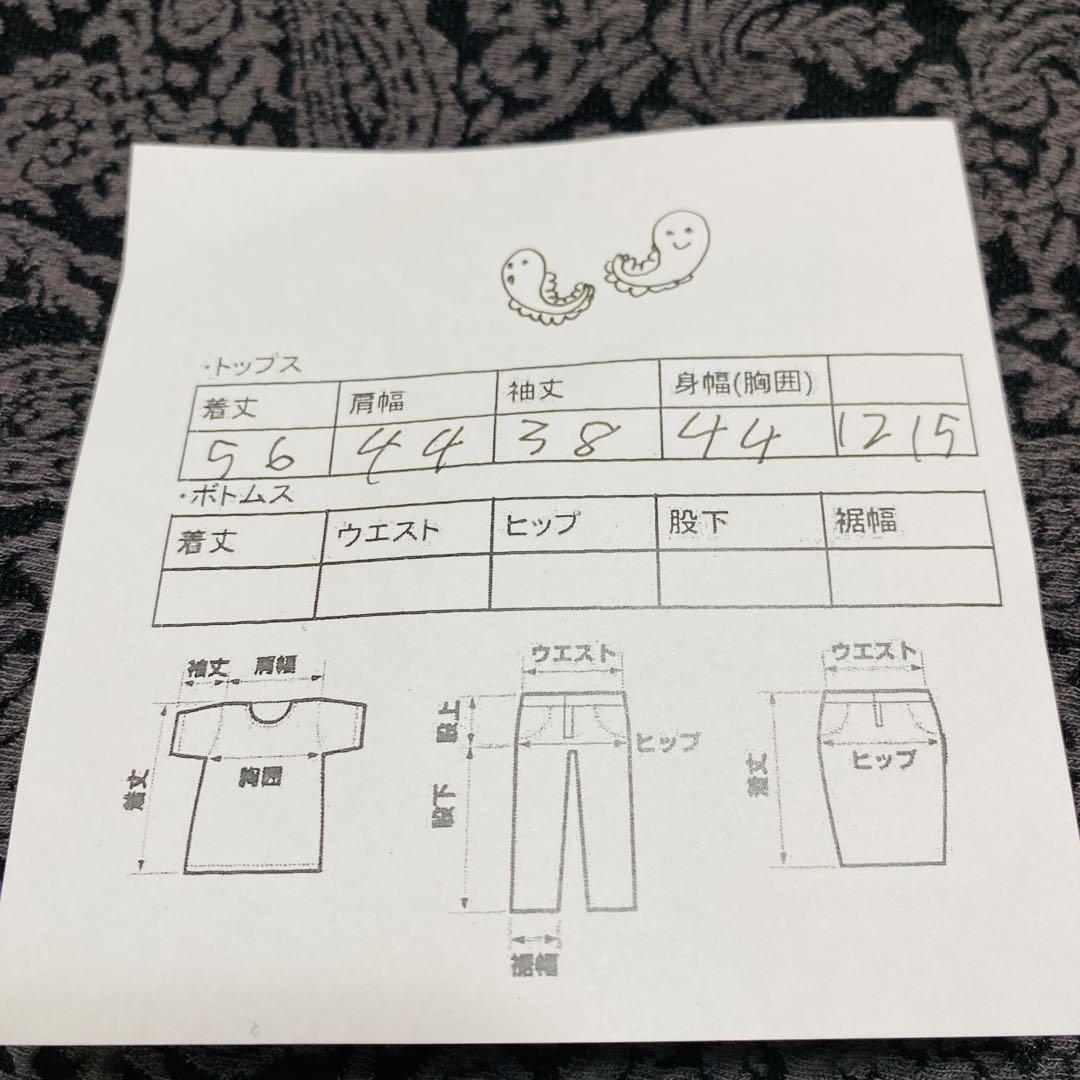 ・トップス
着丈 肩幅 袖丈 身幅(胸囲)
56 44 38 44 1215
・ボトムス
着丈 ウエスト ヒップ 股下 裾幅
袖丈 肩幅
着丈
胸囲
ウエスト
股上
ヒップ
股下
裾幅
ウエスト
着丈
ヒップ